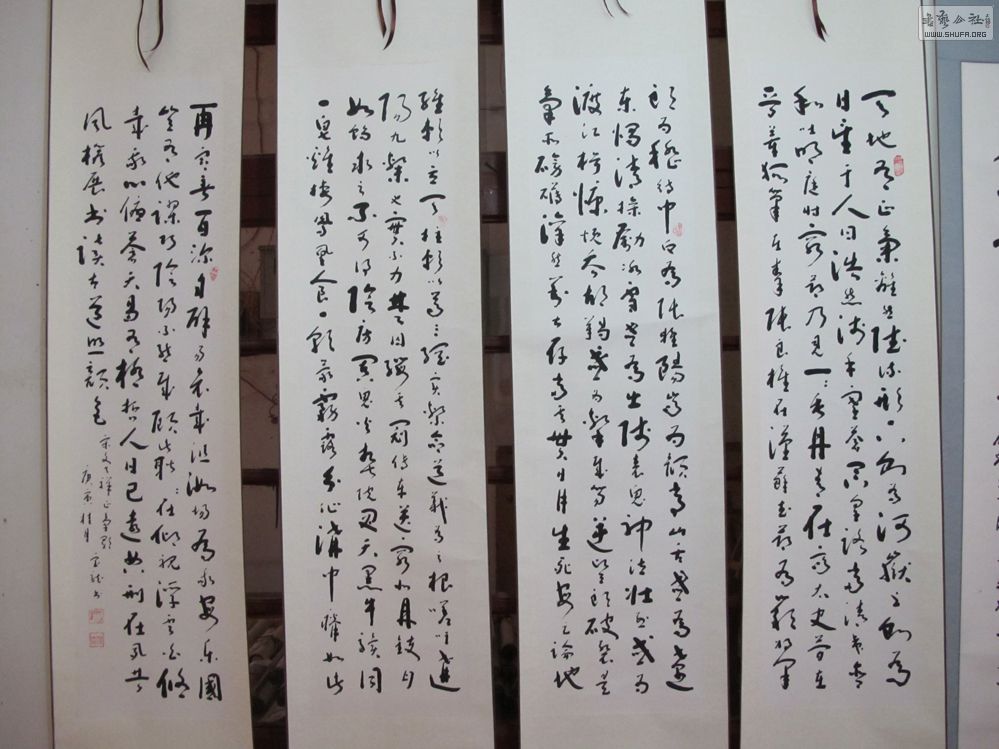 天地有正氣雜然賦流形下則為河嶽上則為
日星于人曰浩然沛乎塞蒼冥皇路當清夷含
和吐明庭時窮節乃見一一垂丹青在齊太史簡在
晉董狐筆在秦張良椎在漢蘇武節為嚴將軍
頭為嵇侍中血為張睢陽齒為顏常山舌或為遼
東帽清操厲冰雪或為出師表鬼神泣壯烈或為
渡江楫慷慨吞胡羯或為擊賊笏逆豎頭破裂是
氣所磅礴凜烈萬古存當其貫日月生死安足論地
維賴以立天柱賴以尊三綱實繫命道義為之根嗟予遘
陽九隸也實不力楚囚纓其冠傳車送窮北鼎鑊甘
如飴求之不可得陰房闃鬼火春院閟天黑牛驥同
一皂雞棲鳳凰食一朝蒙霧露分作溝中瘠如此
再寒暑百沴自辟易哀哉沮洳場為我安樂國
豈有他謬巧陰陽不能賊顧此耿耿在仰視浮雲白悠
我心蒼天曷有極哲人日已遠典刑在夙昔
風檐展書讀古道照顏色
宋文天祥正氣歌
庚寅桂月書
書藝公社
WWW.SHUFA.ORG